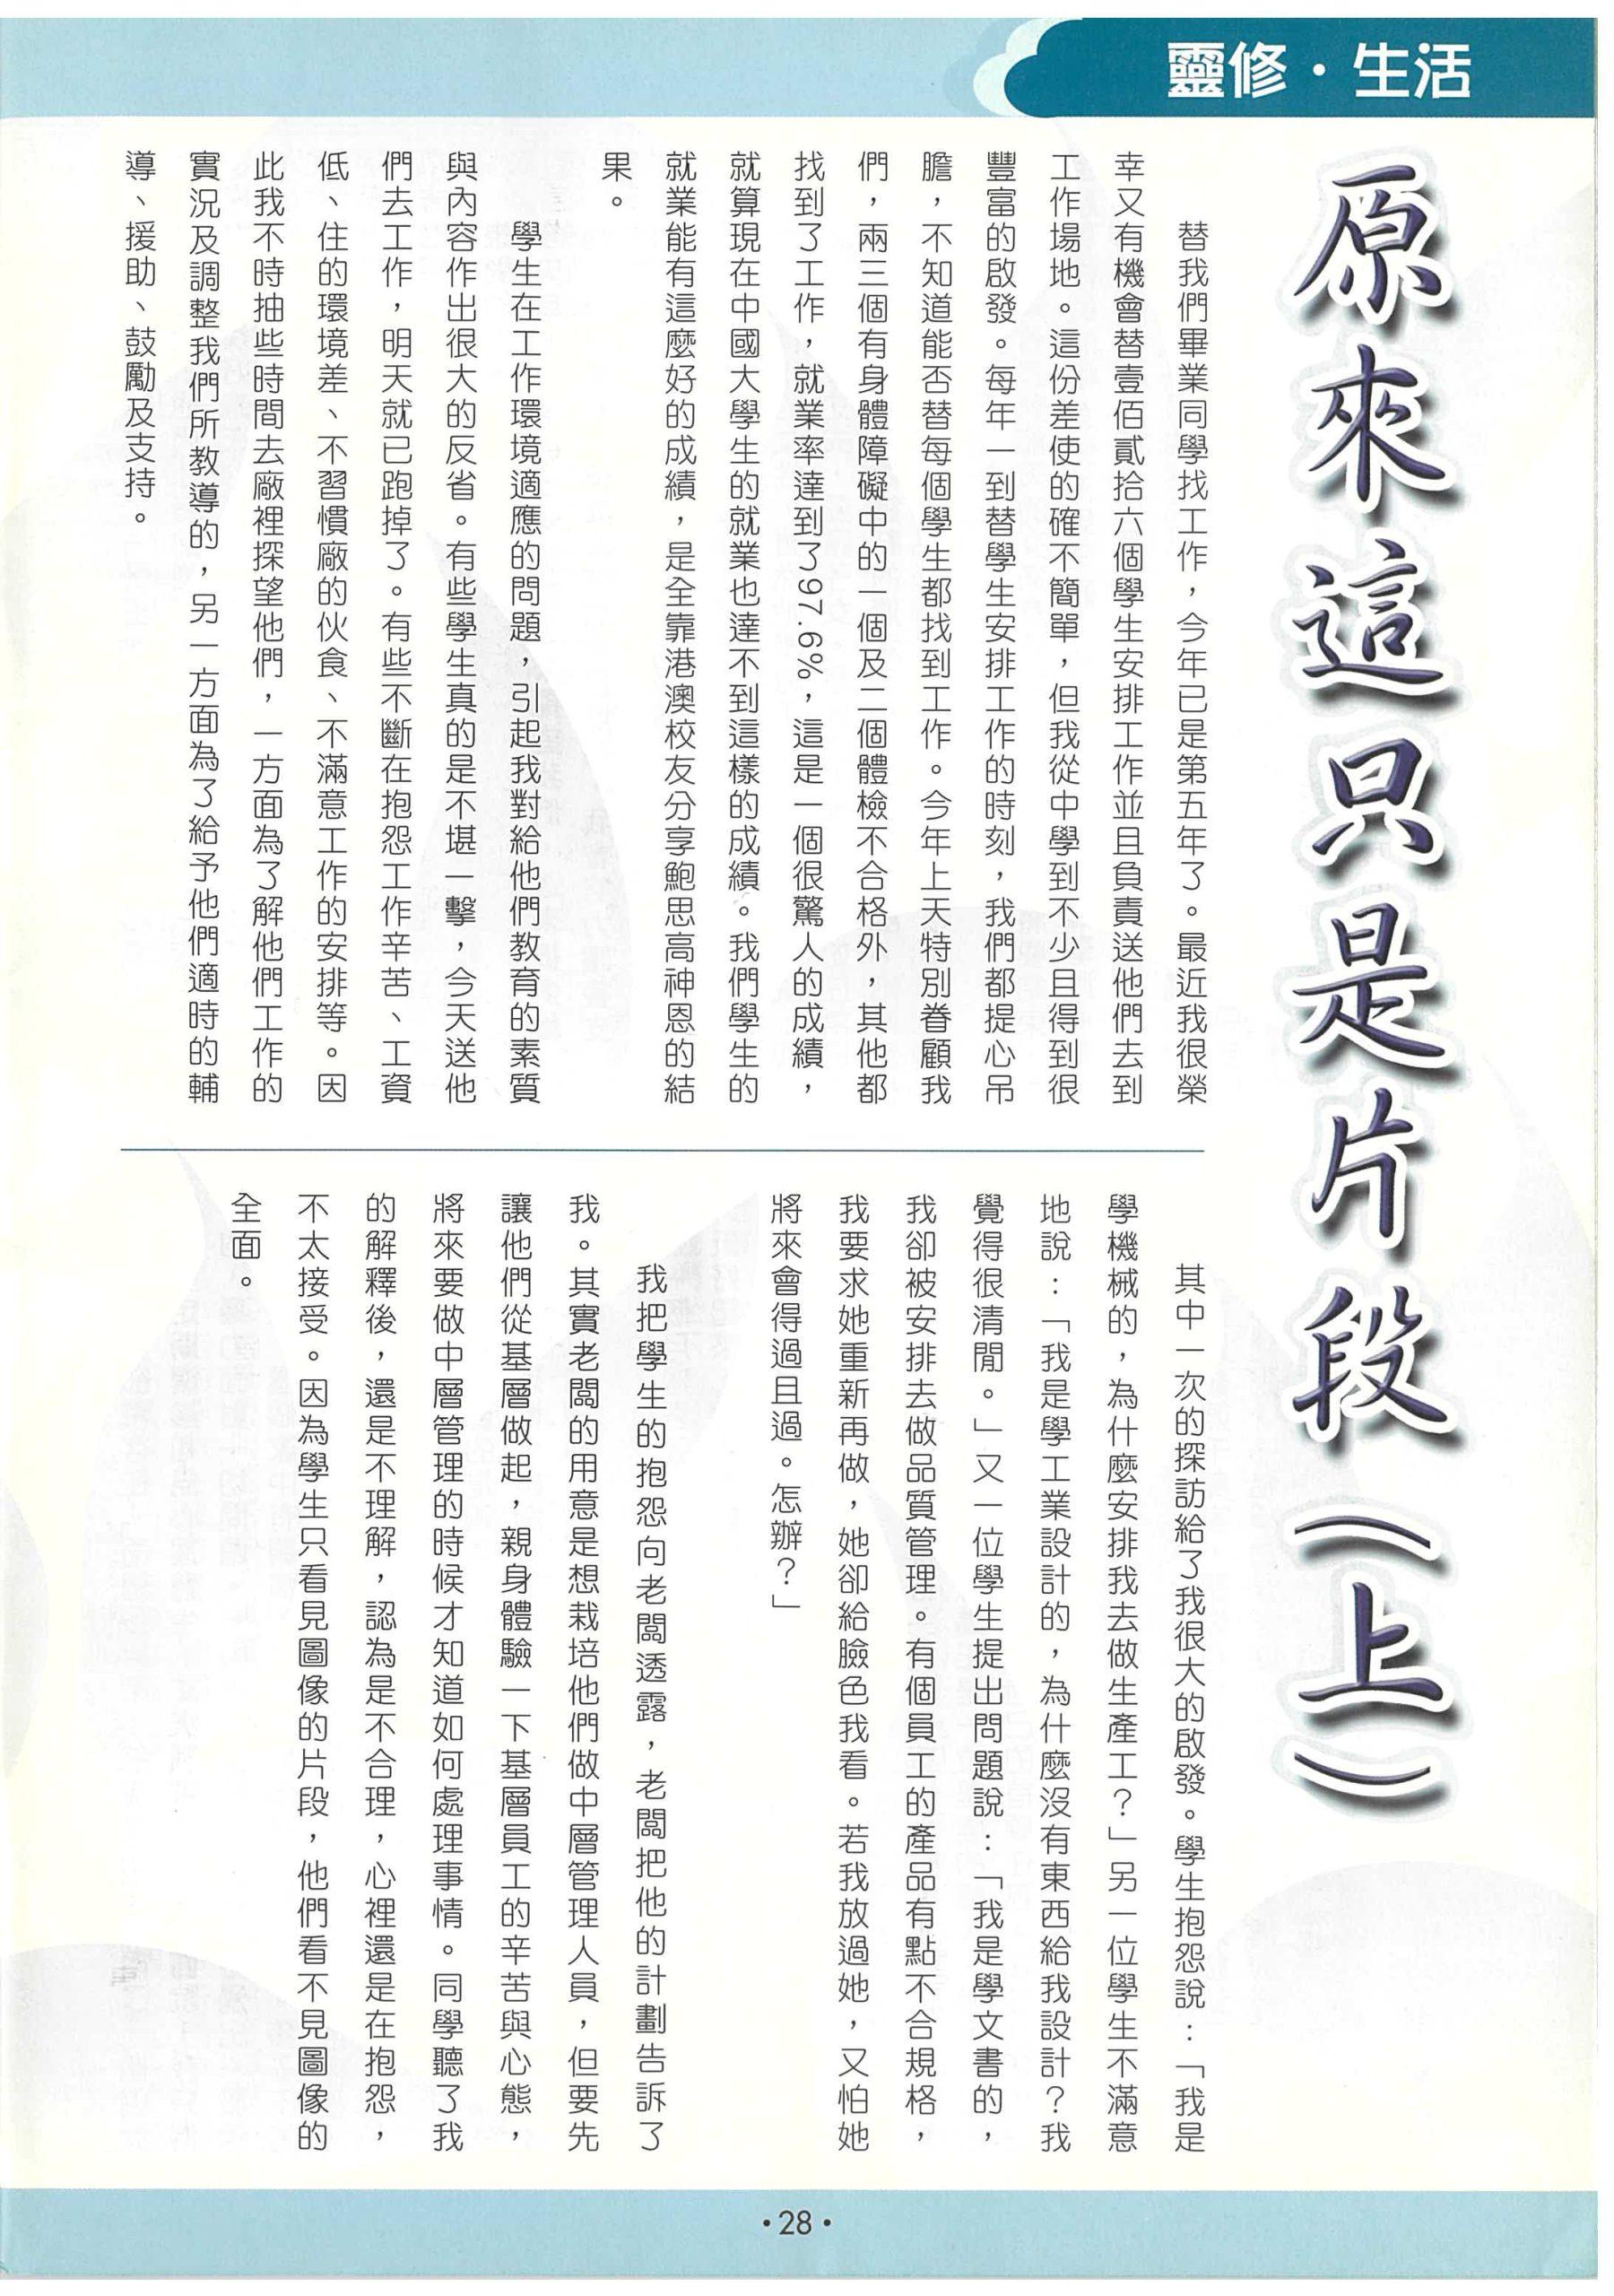 靈修·生活
原來這只是片段（上）
替我們畢業同學找工作，今年已是第五年了。最近我很榮
幸又有機會替壹佰貳拾六個學生安排工作並且負責送他們去到
工作場地。這份差使的確不簡單，但我從中學到不少且得到很
豐富的啟發。每年一到替學生安排工作的時刻，我們都提心吊
膽，不知道能否替每個學生都找到工作。今年上天特別眷顧我
們，兩三個有身體障礙中的一個及二個體檢不合格外，其他都
找到了工作，就業率達到了97.6%，這是一個很驚人的成績，
就算現在中國大學生的就業也達不到這樣的成績。我們學生的
就業能有這麼好的成績，是全靠港澳校友分享鮑思高神恩的結
果。
學生在工作環境適應的問題，引起我對給他們教育的素質
與內容作出很大的反省。有些學生真的是不堪一擊，今天送他
們去工作，明天就已跑掉了。有些不斷在抱怨工作辛苦、工資
低、住的環境差、不習慣廠的伙食、不滿意工作的安排等。因
此我不時抽些時間去廠裡探望他們，一方面為了解他們工作的
實況及調整我們所教導的，另一方面為了給予他們適時的輔
導、援助、鼓勵及支持。
其中一次的探訪給了我很大的啟發。學生抱怨說：「我是
學機械的，為什麼安排我去做生產工？」另一位學生不滿意
地說：「我是學工業設計的，為什麼沒有東西給我設計？我
覺得很清閒。」又一位學生提出問題說：「我是學文書的，
我卻被安排去做品質管理。有個員工的產品有點不合規格，
我要求她重新再做，她卻給臉色我看。若我放過她，又怕她
將來會得過且過。怎辦？」
我把學生的抱怨向老闆透露，老闆把他的計劃告訴了
我。其實老闆的用意是想栽培他們做中層管理人員，但要先
讓他們從基層做起，親身體驗一下基層員工的辛苦與心態，
將來要做中層管理的時候才知道如何處理事情。同學聽了我
的解釋後，還是不理解，認為是不合理，心裡還是在抱怨，
不太接受。因為學生只看見圖像的片段，他們看不見圖像的
全面。
·28·